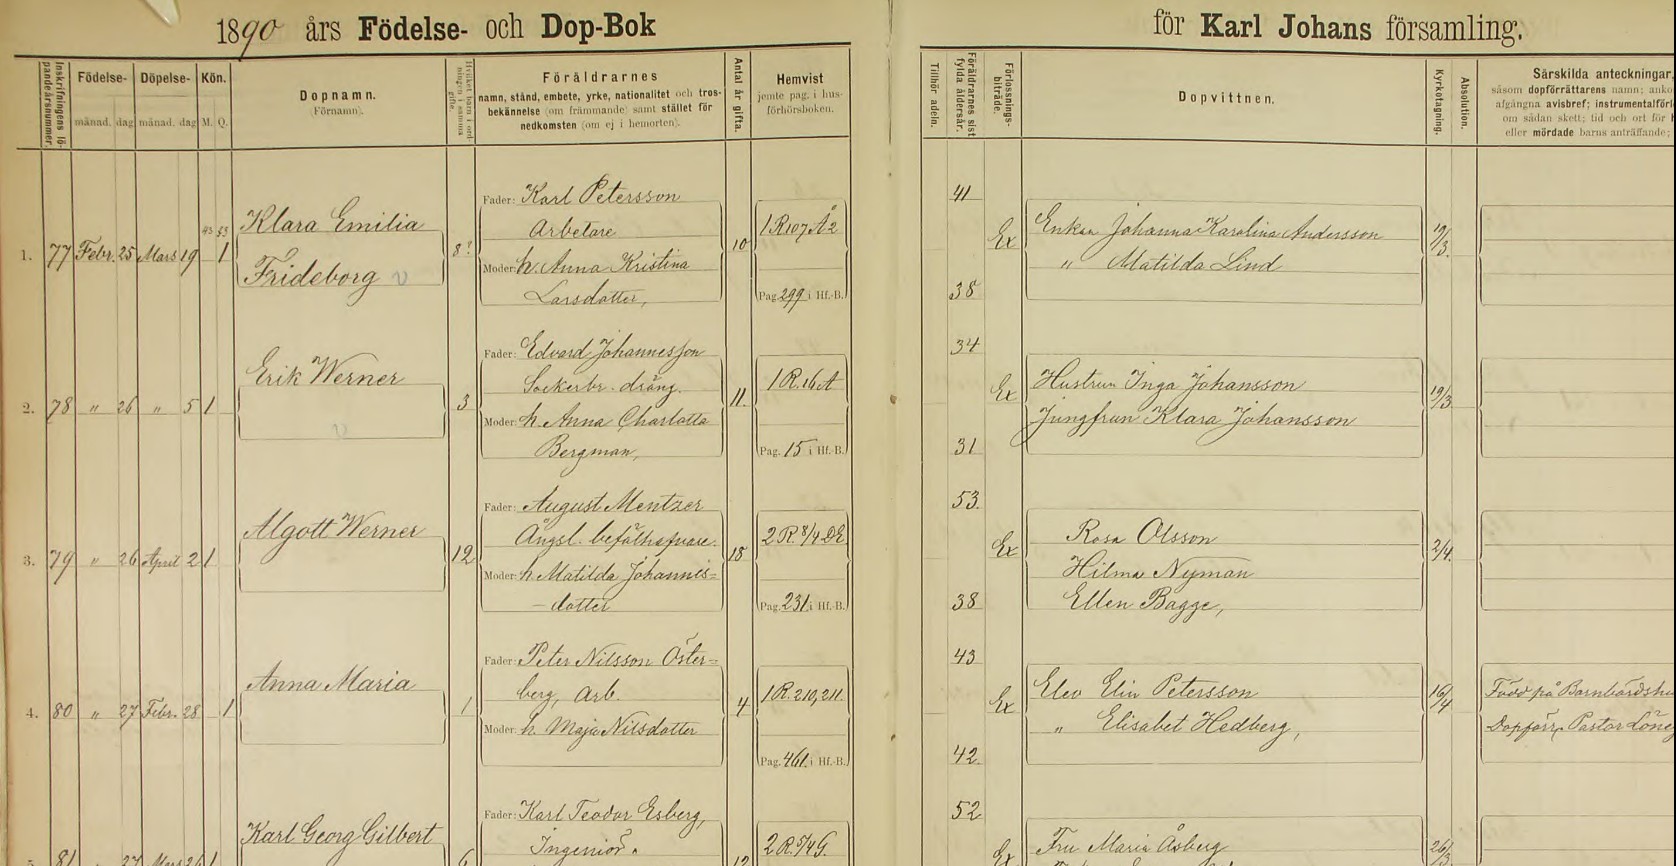 1890 års Födelse- och Dop-Bok
för Karl Johans församling.
Inskrifningens lö-
pande årsnummer.
Födelse-
månad. dag
Döpelse-
månad. dag
Kön.
M. Q.
Dopnamn.
(Förnamn).
Hvilket barn i ord-
ningen i samma
gifte.
Föräldrarnes
namn, stånd, embete, yrke, nationalitet och tros-
bekännelse (om främmande) samt stället för
nedkomsten (om ej i hemorten).
Antal år gifta.
Hemvist
jemte pag. i hus-
förhörsboken.
Tillhör adeln.
Föräldrarnes sist
fylda åldersår.
Förlossnings-
biträde.
Dopvittnen.
Kyrkotagning.
Absolution.
Särskilda anteckningar,
såsom dopförrättarens namn; anko
afgångna avisbref; instrumentalförl
om sådan skett; tid och ort för
eller mördade barns anträffande;
43 53
1. 77 Febr. 25 Mars 19 1
Klara Emilia
Frideborg v
8?
Fader: Karl Petersson
Arbetare
Moder: h. Anna Kristina
Larsdotter,
10
1 R 107 Å 2
Pag. 299 i Hf.-B.
41
38
Ex
Enkan Johanna Karolina Andersson
" Matilda Lind
19/3.
2. 78 " 26 " 5 1
Erik Werner
v
3
Fader: Edvard Johannesson
Sockerbr. dräng.
Moder: h. Anna Charlotta
Bergman,
11.
1 R. 16 A
Pag. 15 i Hf.-B.
34
31
Ex
Hustrun Inga Johansson
Jungfrun Klara Johansson
19/3
3. 79 " 26 April 2 1
Algott Werner
12
Fader: August Mentzer
Ångsl. befälhafvare.
Moder: h. Matilda Johannis=
-dotter
18
2 R. 8/4 DE
Pag. 231 i Hf.-B.
53.
38
Ex
Rosa Olsson
Hilma Nyman
Ellen Bagge,
2/4.
4. 80 " 27 Febr. 28 1
Anna Maria
1
Fader: Peter Nilsson Öster=
berg, Arb.
Moder: h. Maja Nilsdotter
4
1 R. 210, 211.
Pag. 461 i Hf.-B.
43
42
Ex
Elev Elin Petersson
" Elisabet Hedberg,
16/4
Född på Barnbördshu
Dopförr. Pastor Löne
81 " 27 Mars 26 1
Karl Georg Gilbert
6
Fader: Karl Teodor Esberg,
Ingeniör.
12
2 R 5/4 G.
52
Ex
Fru Maria Åsberg
26/3